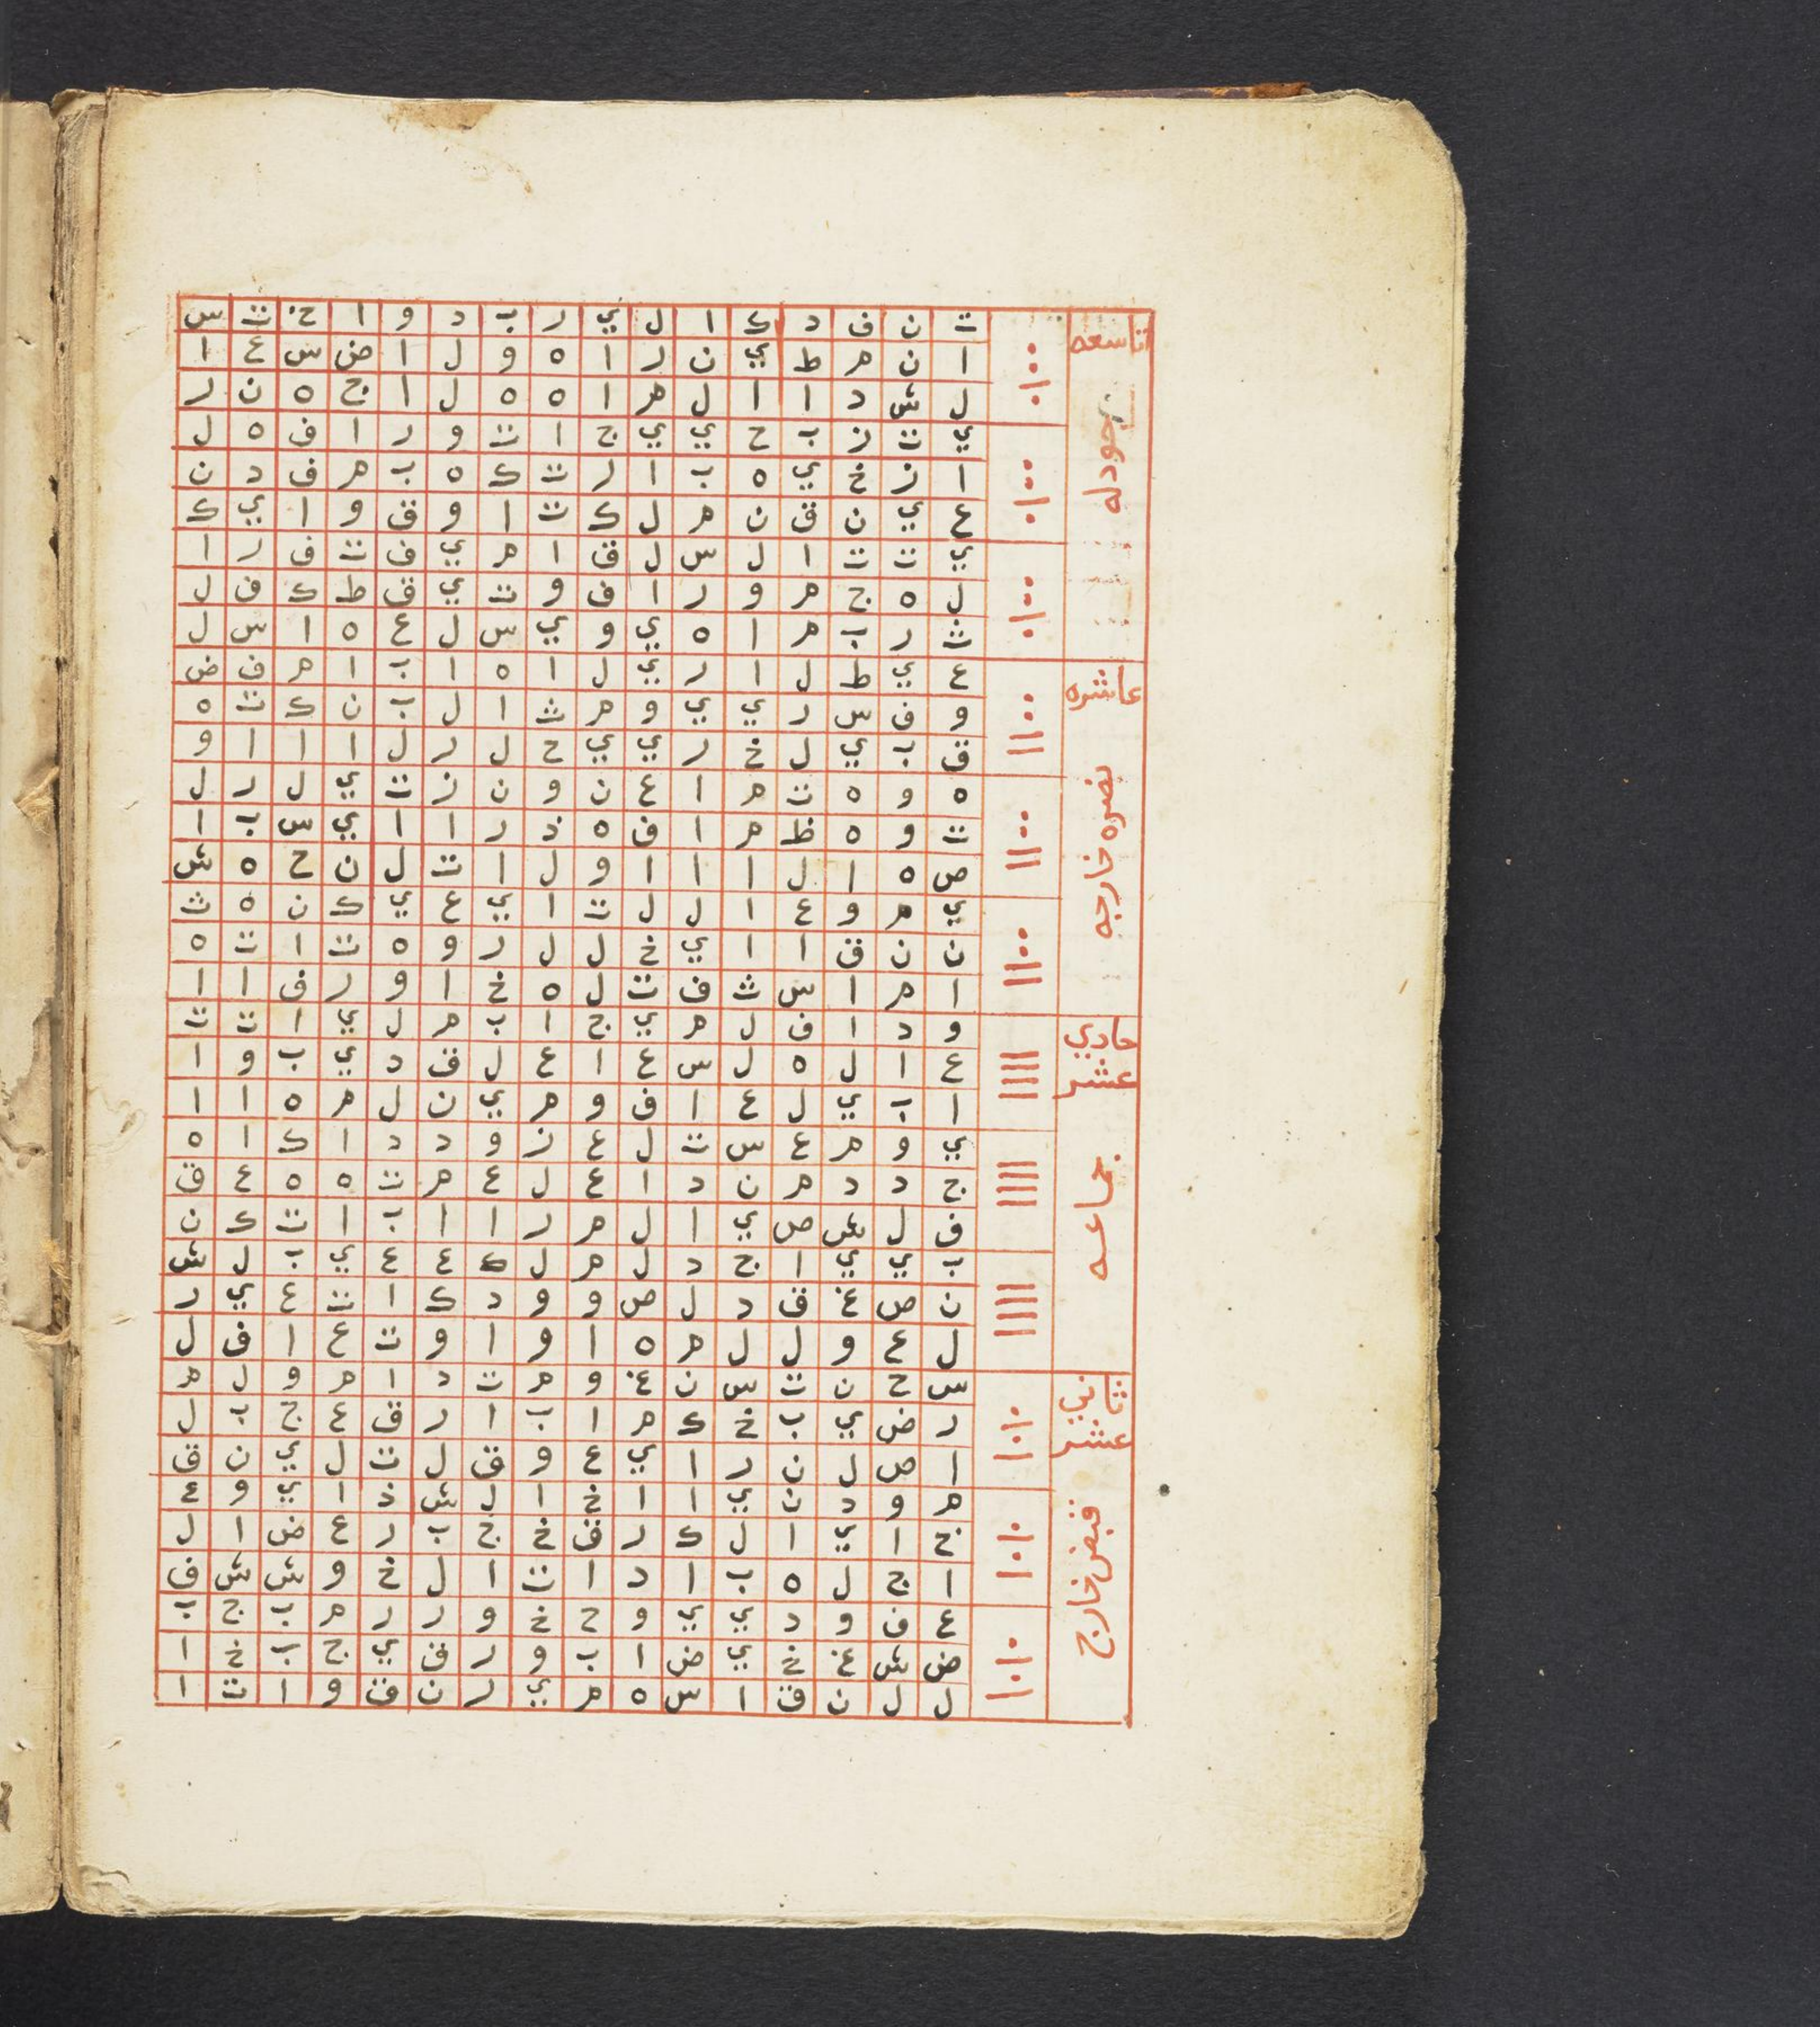 تاسعه
جودله
ت ن ف د ك ا ل ي ر ب د و ا خ ت س
ا ن م ط ي ن ر ا ه و ل ا ض س ع ا
ل ش د ا ا ل م ا ه ه ل ا ج ه ن ر
ي ت ز ب ح ي ي ج ا ت و ر ا ف ه ل
ا ز خ ي ه ب ا ر ت ك ه ب م ف د ن
ع ي ن ق ن م ل ك ت ا و ق و ا ي ك
ي ت ت ا ل س ل ق ا م ي ف ت ف ر ا
ل ه ج م و ر ا ف و ت ي ق ط ك ف ل
ث ر ب م ا ه ي و ي س ل ع ه ا س ل
عاشره
نصره خارجه
ع ي ط ل ا ر ي ل ا ه ا ب ا م ف ض
و ف س ر ي ي و م ث ا ل ب ن ك ت ه
ق ب ي ل خ ر ي ي ح ل ر ل ا ا ا و
ه و ه ت م ا ع ن و ن ز ت ي ل ر ل
ت و ه ظ م ا ف ه ذ ر ا ا ي س ب ا
ص ه ا ل ا ا ا و ل ا ت ل ن ح ه ش
ي م و ع ا ل ل ت ا ي ع ي ك ن ه ث
ن ن ق ا ا ي خ ل ل ر و ه ت ا ت ه
ا م ا س ث ف ت ل ه خ ا و ر ف ا ا
حادي
عشر
جماعه
و د ا ف ل م ي ج ا ب م ل ي ا ت ت
ع ا ل ه ل س ع ا ع ل ف د ي ب و ا
ا ب ي ل ع ا ف و م ي ن ل م ه ا ا
ي و م ع س ت ل ع ز و د د ا ك ا ه
ج د د م ن د ا ع ل ع م ت ه ه ع ق
ف ل ش ص ي ا ل م ر ا ا ب ا ت ك ن
ب ي ي ا ج د ل م ل ك ع ع ي ب ل ش
ن ص غ ق د ل ص و و د ك ا ت ع ي ر
ل ع و ل ل م ه ا و ا و ت ع ا ف ل
ثاني
عشر
قبض خارج
س ح ن ت س ن غ و م ت د ا م و ل م
ر ض ي ب خ ك م ا ب ا ر ق ع ج ب ل
ا ص ل ن ر ا ي ع و ق ل ت ل ي ن ق
م و د ن ي ا ا خ ا ل ش ذ ا ي و ع
ج ا ي ا ل ك ر ق خ ج ب ر ع ض ا ل
ا ج ل ه ب ا د ا ت ا ل خ و ش ش ف
ع ف و د ي ي و ح خ و ر ر م ب ج ب
ض ش غ خ ي ض ا ب و ر ق ي ج ب خ ا
ل ل ن ق ا س ه م ي ر ن ق و ا ت ا